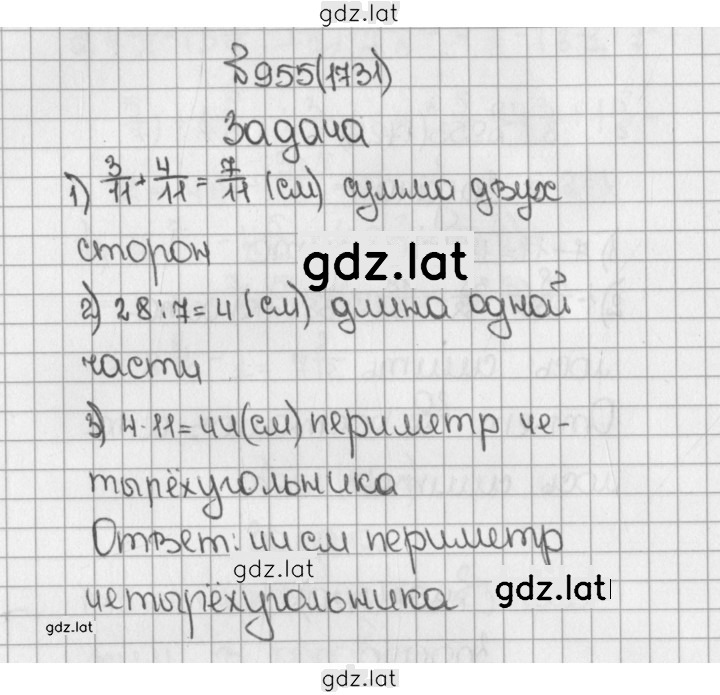 gdz.lat
№955(1731)
Задача
1) 3/11+4/11=7/11 (см) сумма двух
сторон
gdz.lat
2) 28:7=4 (см) длина одной
части
3) 4·11=44(см) периметр че-
тырёхугольника
Ответ: 44 см периметр
gdz.lat
gdz.lat
четырёхугольника
gdz.lat
gdz.lat